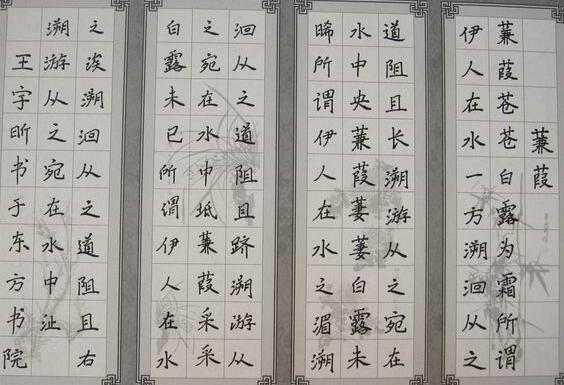 蒹葭
蒹葭苍苍白露为霜所谓
伊人在水一方溯洄从之
道阻且长溯游从之宛在
水中央蒹葭萋萋白露未
晞所谓伊人在水之湄溯
洄从之道阻且跻溯游从
之宛在水中坻蒹葭采采
白露未已所谓伊人在水
之涘溯洄从之道阻且右
溯游从之宛在水中沚
王宇昕书于东方书院